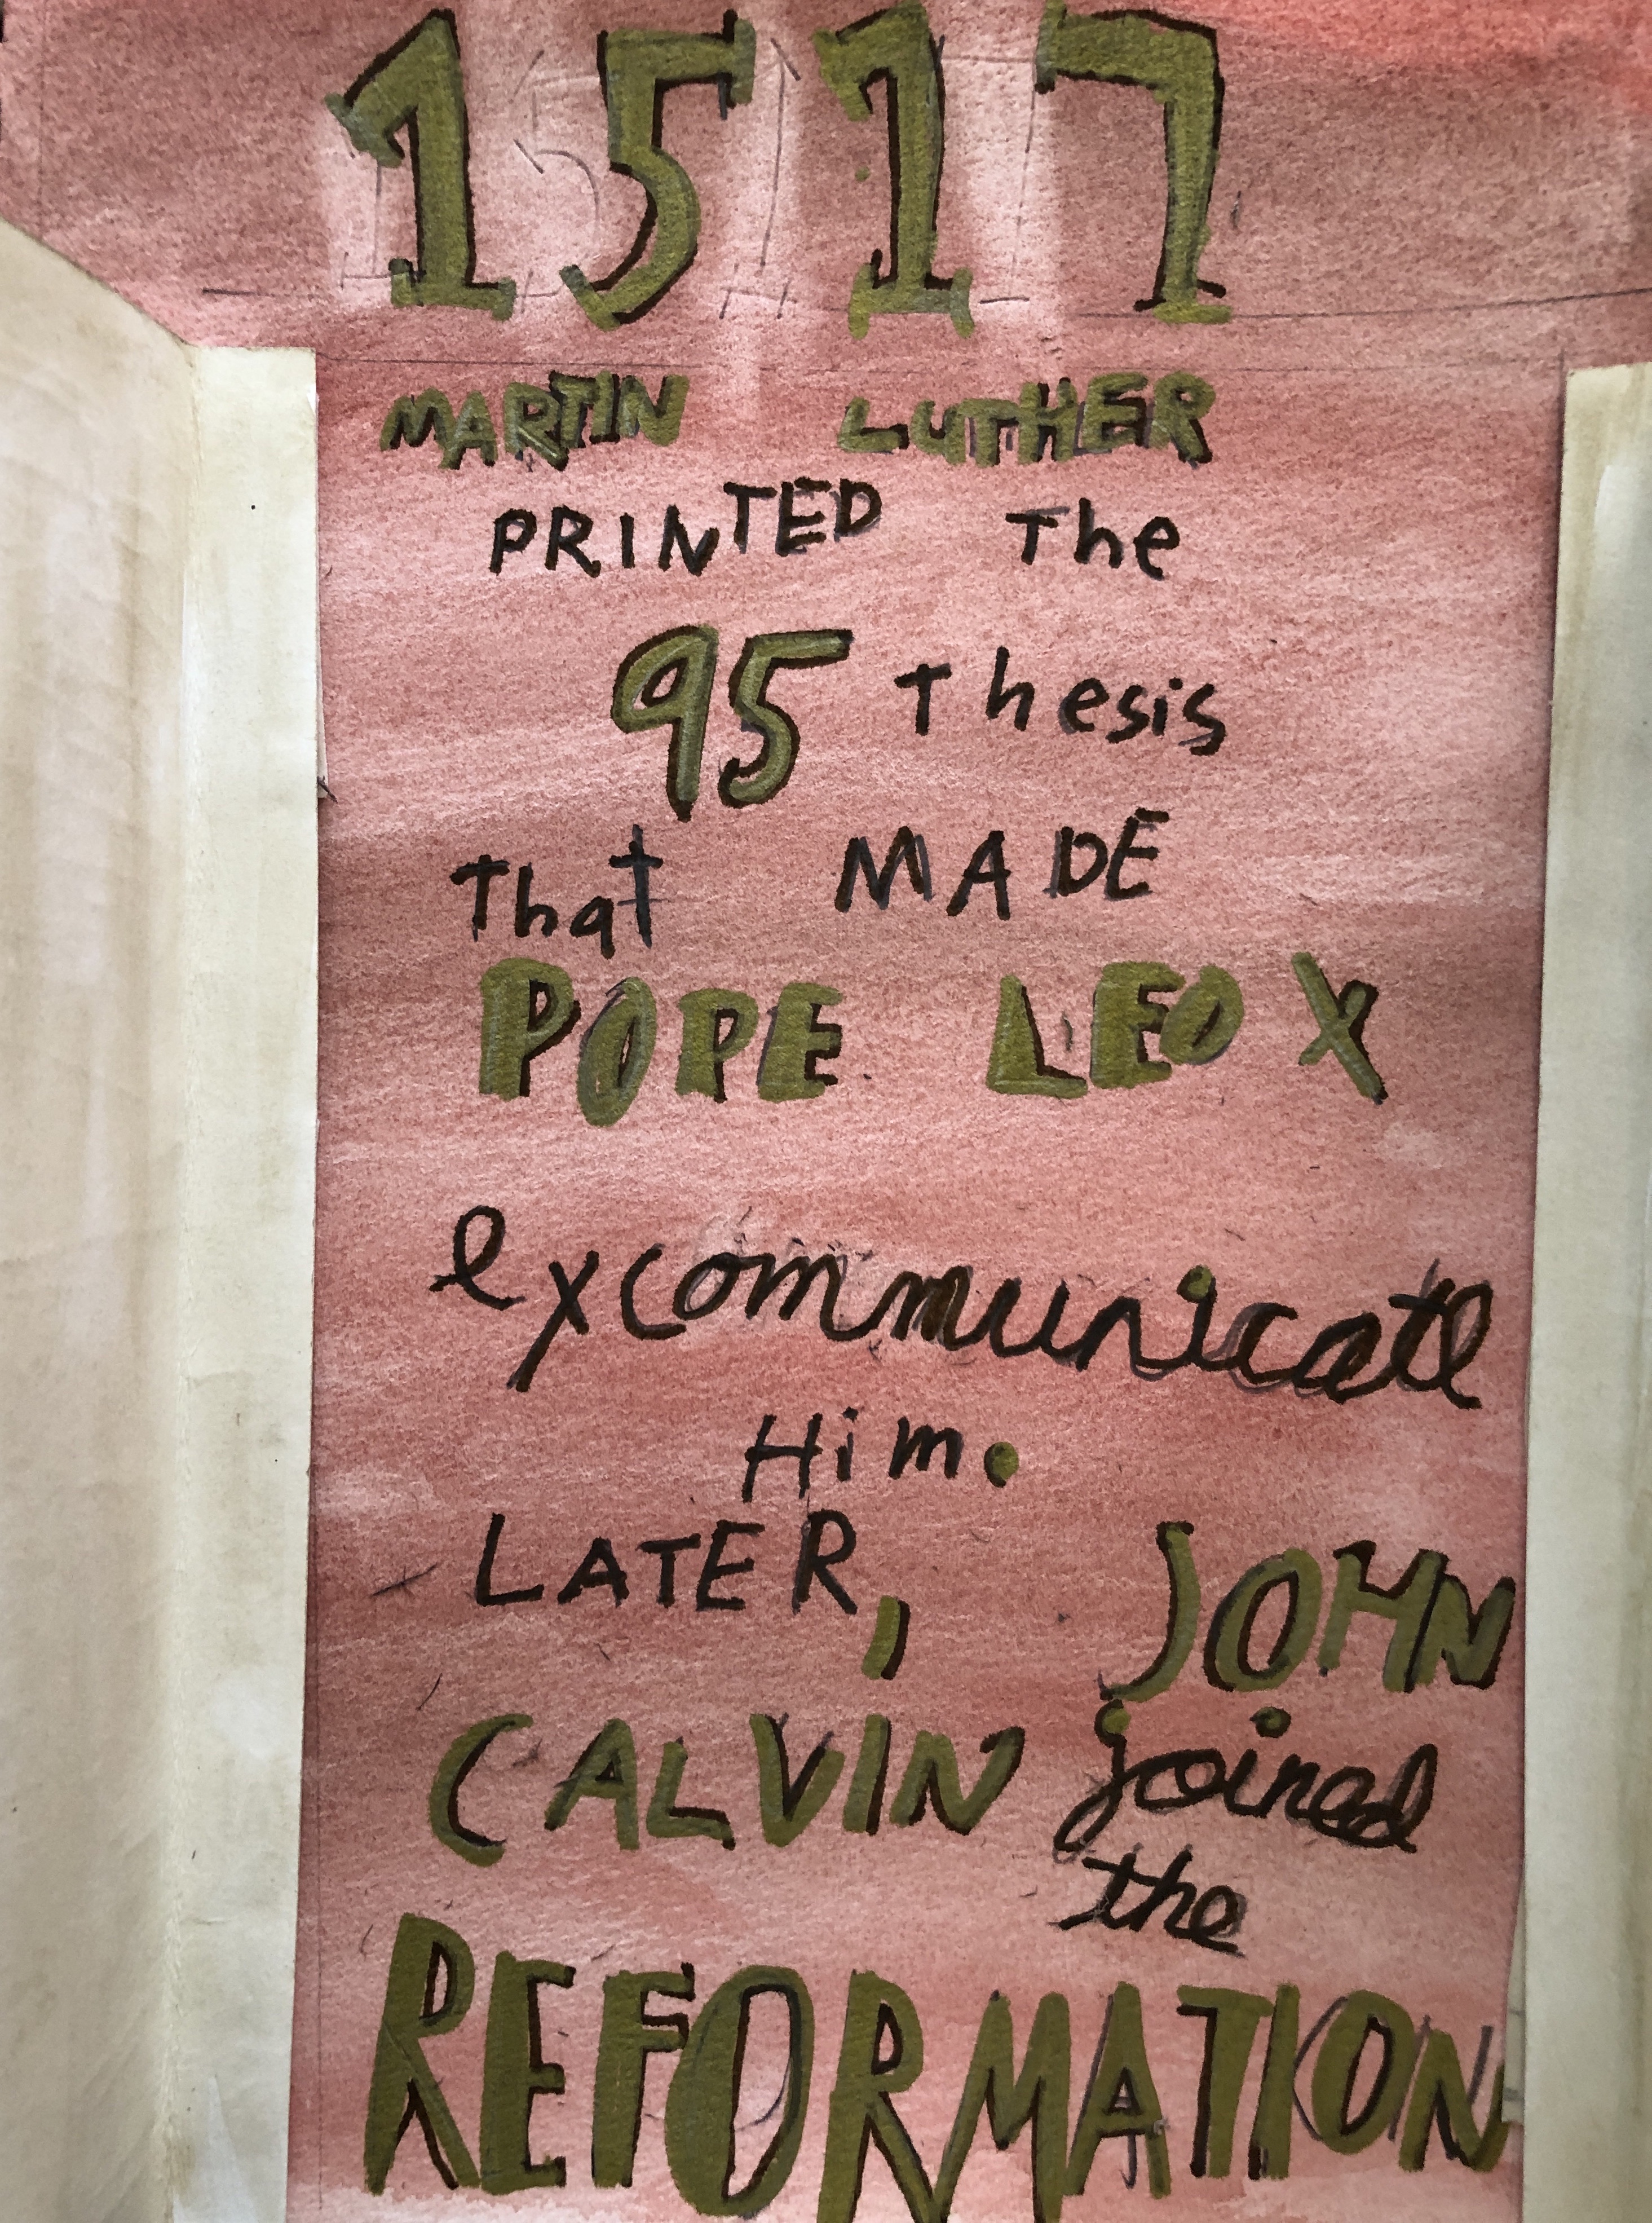 1517
MARTIN LUTHER
PRINTED The
95 thesis
That MADE
POPE LEO X
excommunicate
Him.
LATER, JOHN
CALVIN joined
the
REFORMATION